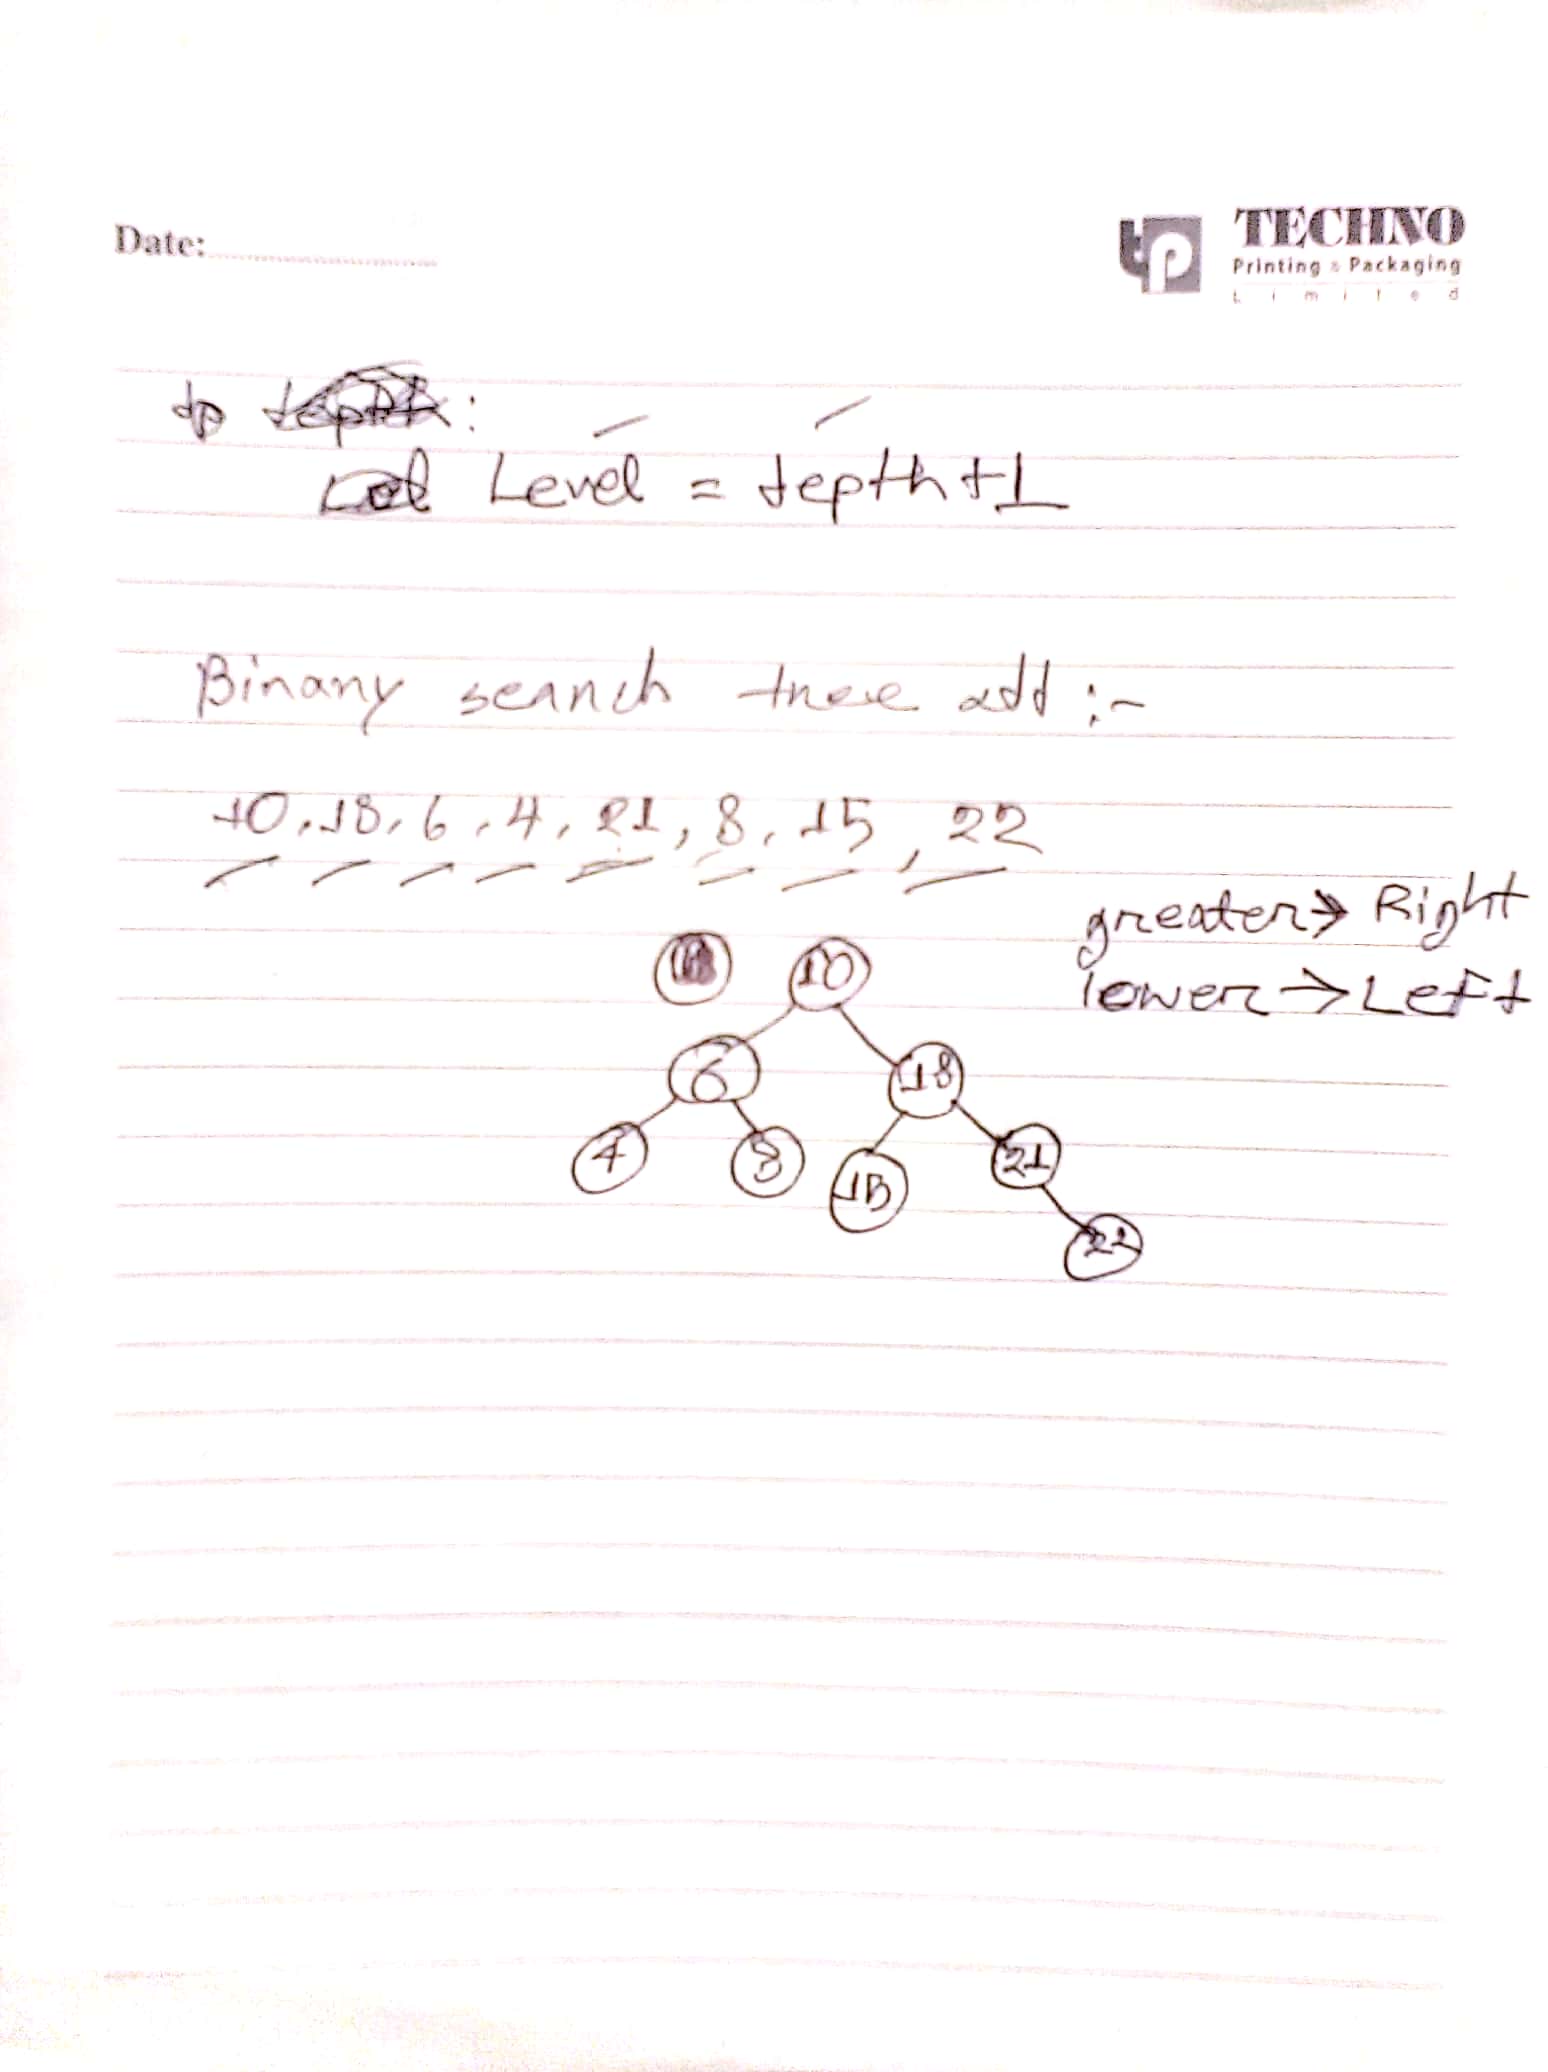 Date:
TECHNO
Printing & Packaging
Limited
Level = depth +1
Binary search tree add :-
10, 18, 6, 4, 21, 8, 15, 22
greater → Right
lower → Left
10
6 18
4 8 15 21
22